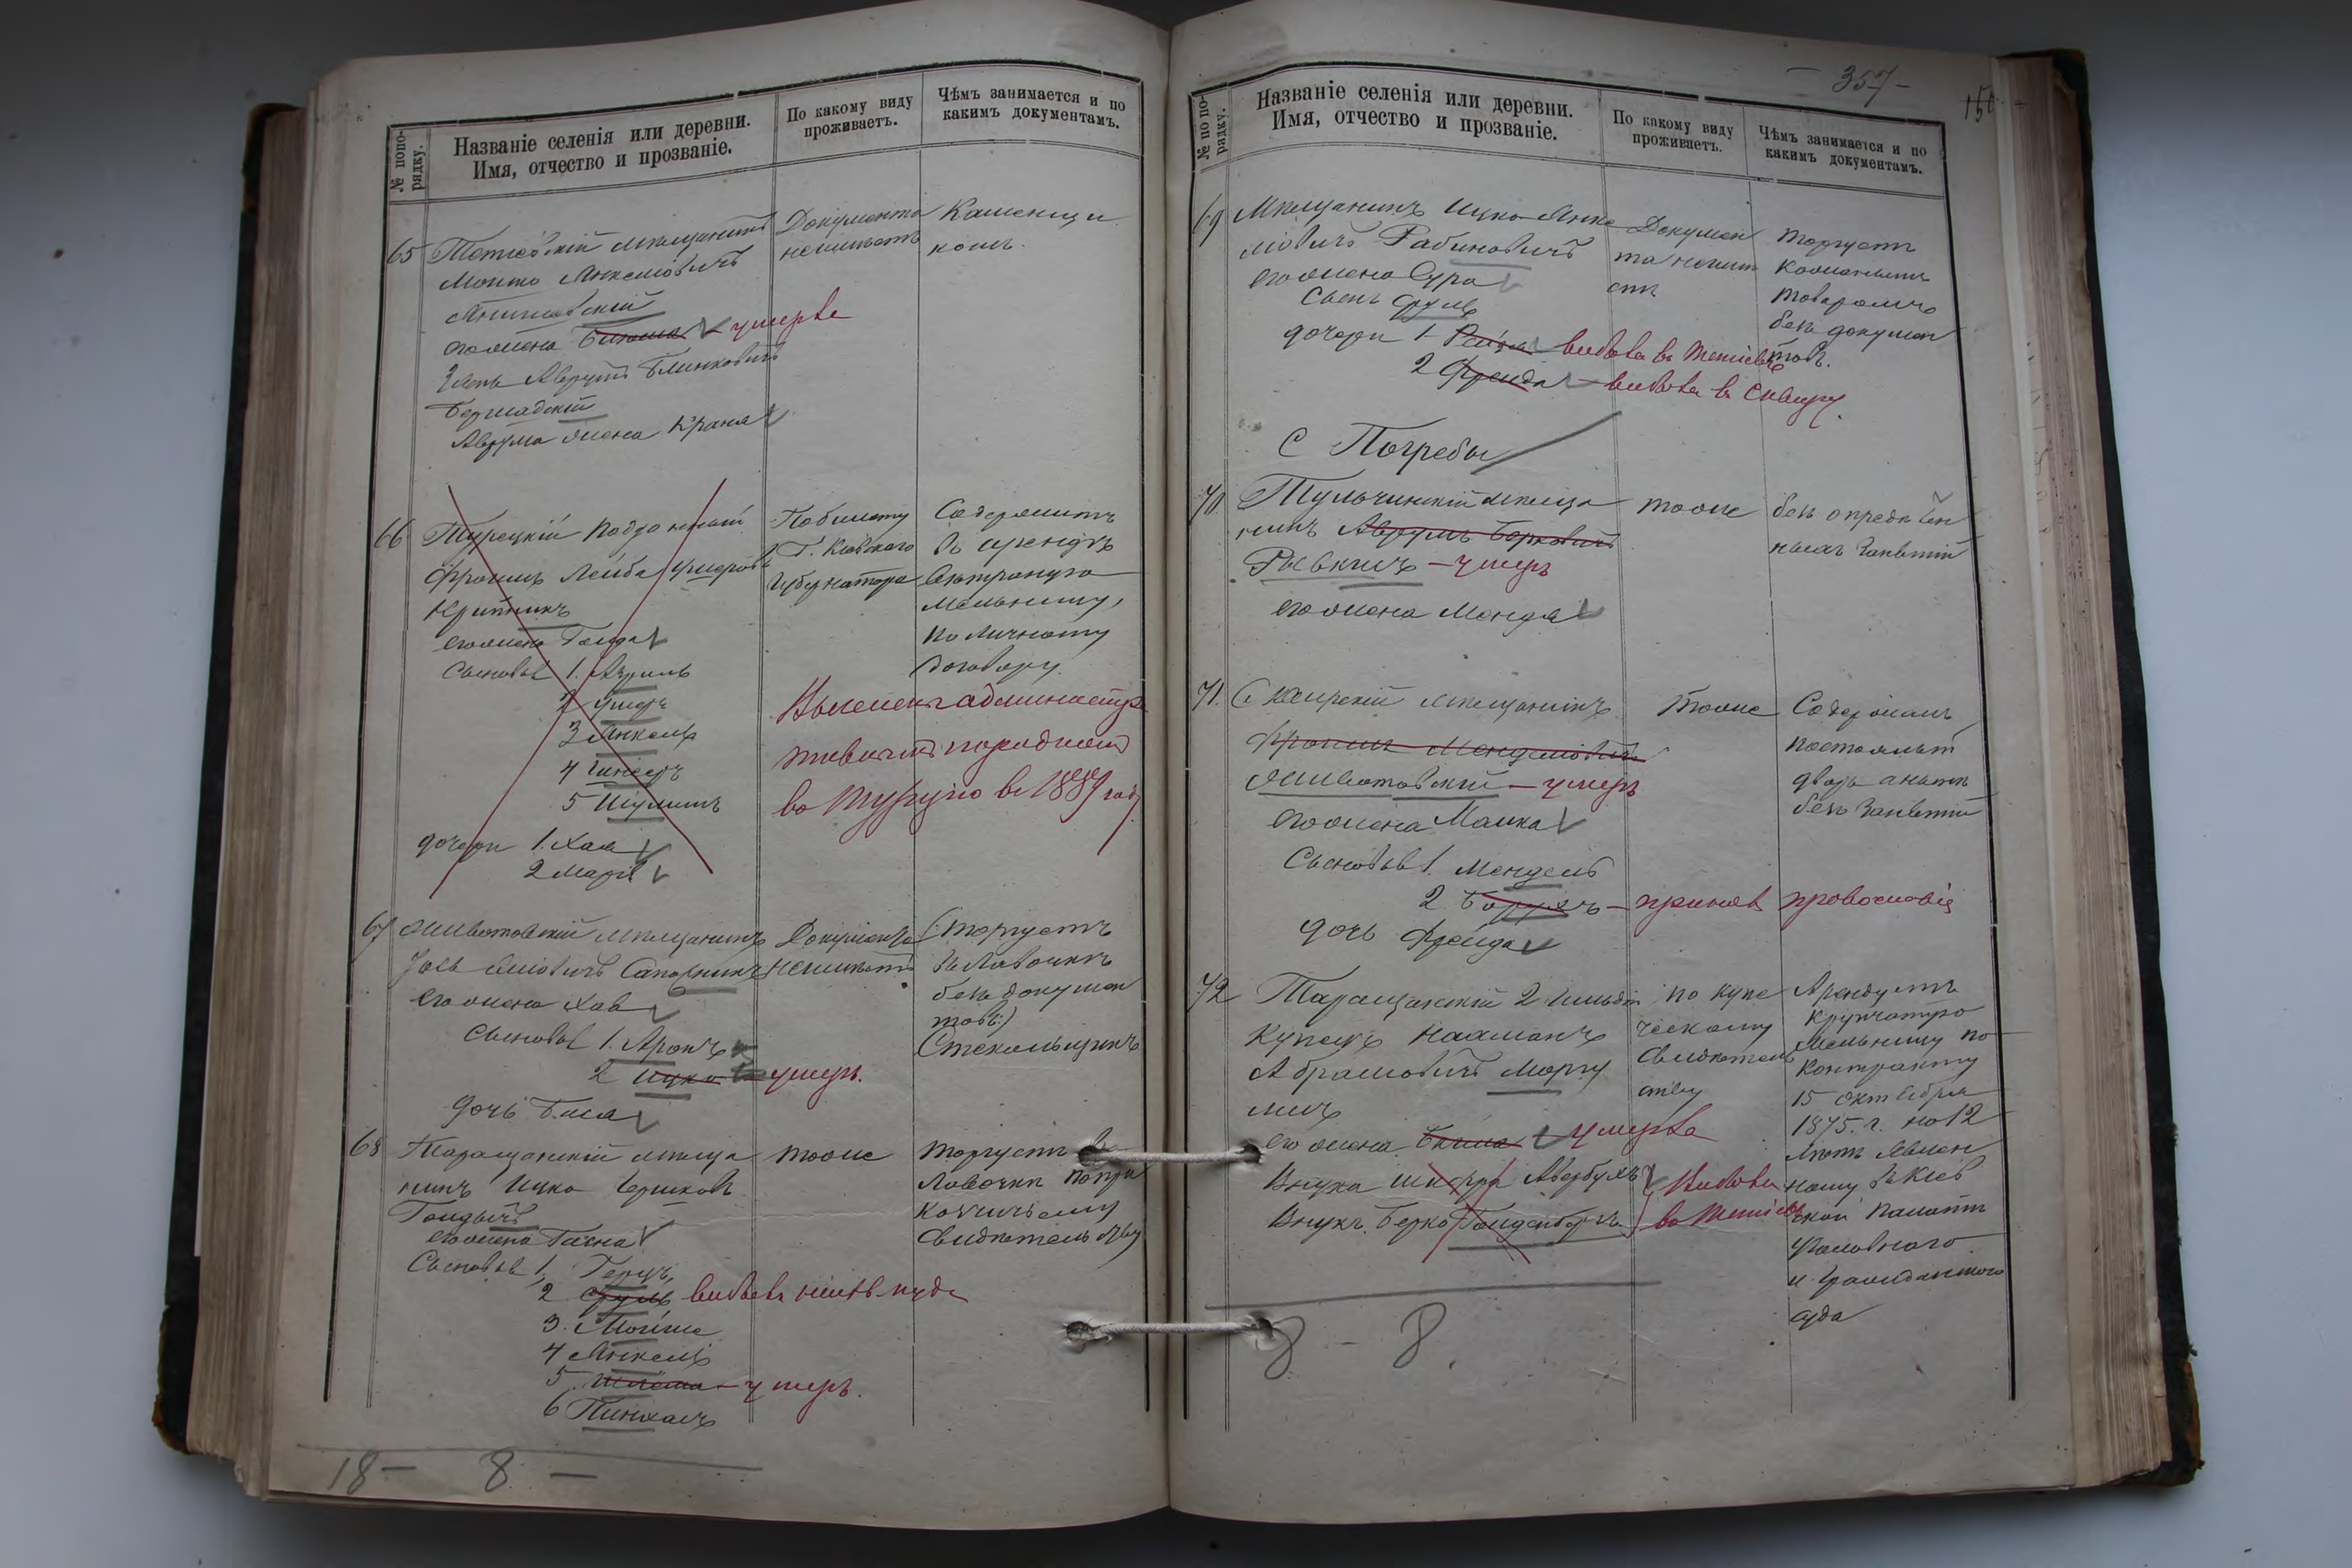 № попо-
рядку.
Названіе селенія или деревни.
Имя, отчество и прозваніе.
По какому виду
проживаетъ.
Чѣмъ занимается и по
какимъ документамъ.
65 Тетіевскій мѣщанинъ
Мошко Янкелiовичъ
его жена умерла
Зять Аврумъ
Бершадскій
Аврума жена Краня
Документа
неимѣетъ
Каменщи
комъ.
66 Турецкій подданный
Фроимъ Лейба
его жена Голда
Сыновья 1. Азриль
2
3 Янкель
4
5
дочери 1. Хая
2
По билету
Г. Кіевскаго
Губернатора
Содержитъ
въ арендѣ
мельницу,
по личному
договору.
Высланъ администра
тивнымъ порядкомъ
въ Турцію въ 1889 году
67 Животовскій мѣщанинъ
Сапожникъ
его жена Хава
Сыновья 1. Аронъ
2 Ицко умеръ.
дочь Бася
Документа
неимѣетъ
(торгуетъ
въ лавочкѣ
безъ докумен
товъ)
Стекольщикъ
68 Таращанскій мѣща
нинъ Ицко Гершковъ
его жена
Сыновья 1. Герцъ
2 Сруль
3. Мойше
4 Янкель
5 умеръ.
6 Пинхасъ
тоже
торгуетъ въ
лавочкѣ по при
кащичьему
свидѣтельству
18 — 8 —
— 357 —
№ по по-
рядку.
Названіе селенія или деревни.
Имя, отчество и прозваніе.
По какому виду
проживаетъ.
Чѣмъ занимается и по
какимъ документамъ.
69 Мѣщанинъ Ицко Янке
ліовичъ Рабиновичъ
его жена Сура
сынъ Сруль
дочери 1 Рейза выбыла въ Тетіевъ
2 Фрейда — выбыла въ Сквиру
Докумен
та неимѣ
етъ
торгуетъ
товаромъ
безъ докумен
товъ.
С Погребы
70 Тульчинскій мѣща
нинъ Аврумъ Берковичъ
Рывкинъ — умеръ
его жена
тоже
безъ опредѣлен
ныхъ занятій
71. Сквирскій мѣщанинъ
Фроимъ Менделіовичъ
Животовскій — умеръ
его жена Малка
Сыновья 1. Мендель
2 Борухъ — принялъ православіе
дочь Фрейда
тоже
Содержалъ
постоялый
дворъ а нынѣ
безъ занятій
72 Таращанскій 2 гильдіи
купецъ Нахманъ
Абрамовичъ Маргу
лисъ
его жена умерла
Внука Авербухъ
Внукъ Берко Голденбергъ
Выбыли
въ Тетіевъ
по купе
ческому
свидѣтель
ству
Арендуетъ
крупчатую
мельницу по
контракту
15 октября
1875. г. на 12
лѣтъ явлен
ному въ Кіев
ской палатѣ
уголовнаго
и гражданскаго
суда
8 — 8.